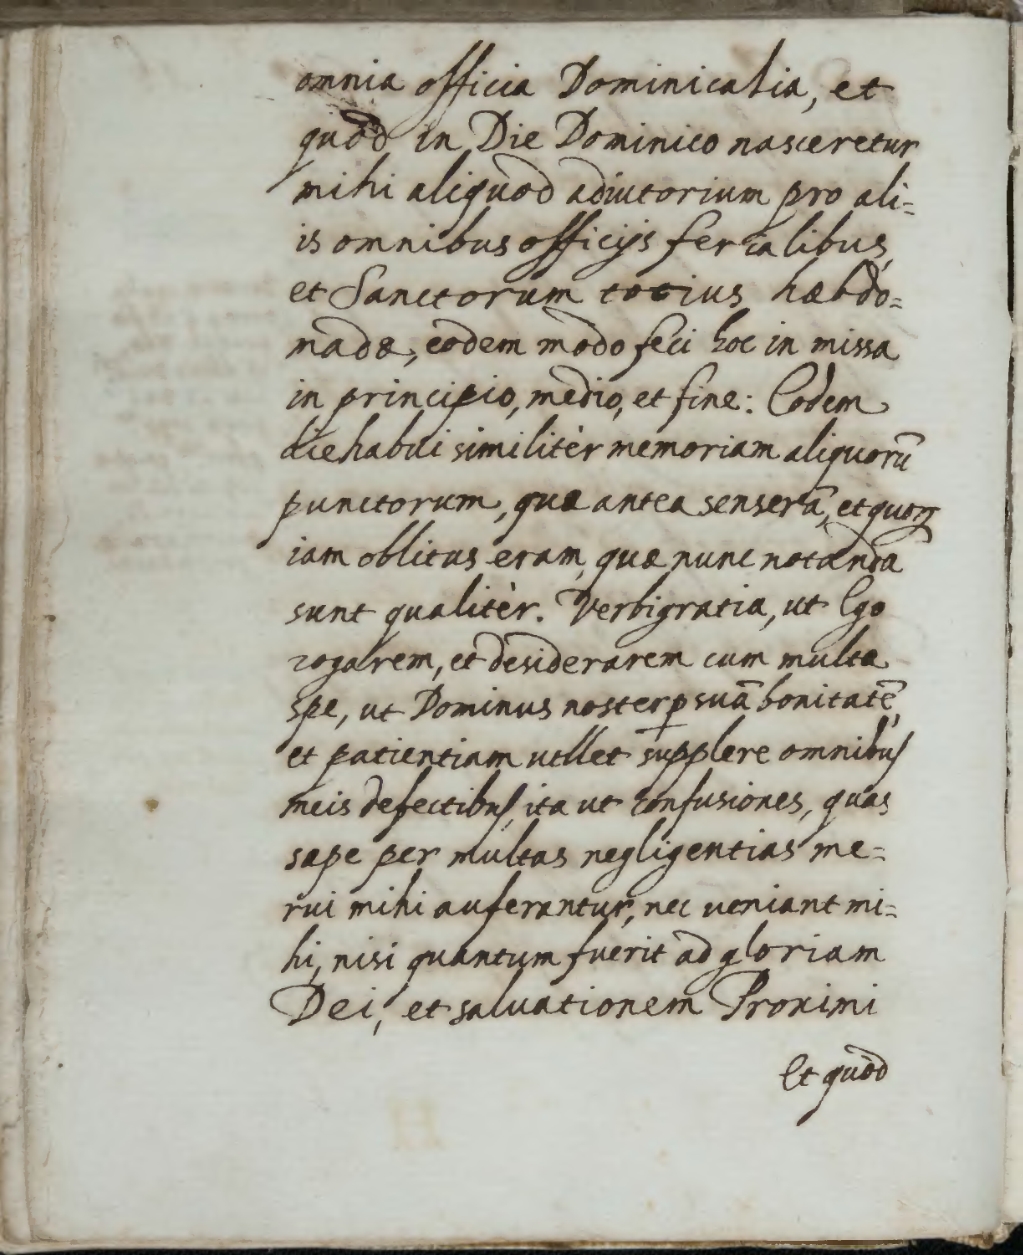 omnia officia Dominicalia, et
quòd in Die Dominico nasceretur
mihi aliquod adiutorium pro ali=
is omnibus officijs ferialibus,
et Sanctorum totius hæbdo=
madæ, eodem modo feci hoc in missa
in principio, medio, et fine: Eodem
die habui similitèr memoriam aliquorū
punctorum, quæ antea senserā, et quorꝝ
iam oblitus eram, quæ nunc notanda
sunt qualitèr. Verbigratia, ut Ego
rogarem, et desiderarem cum multa
spe, ut Dominus noster ꝑ suā bonitatē,
et patientiam uellet supplere omnibus
meis defectibus, ita ut confusiones, quas
sæpe per multas negligentias me=
rui mihi auferantur, nec ueniant mi=
hi, nisi quantum fuerit ad gloriam
Dei, et saluationem Proximi
Et quòd